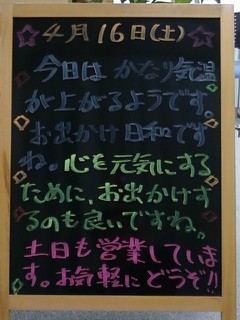 4月16日(土)
今日は かなり気温
が上がるようです。
お出かけ日和です
ね。心を元気にする
ために、お出かけす
るのも良いですね。
土日も営業していま
す。お気軽にどうぞ!!